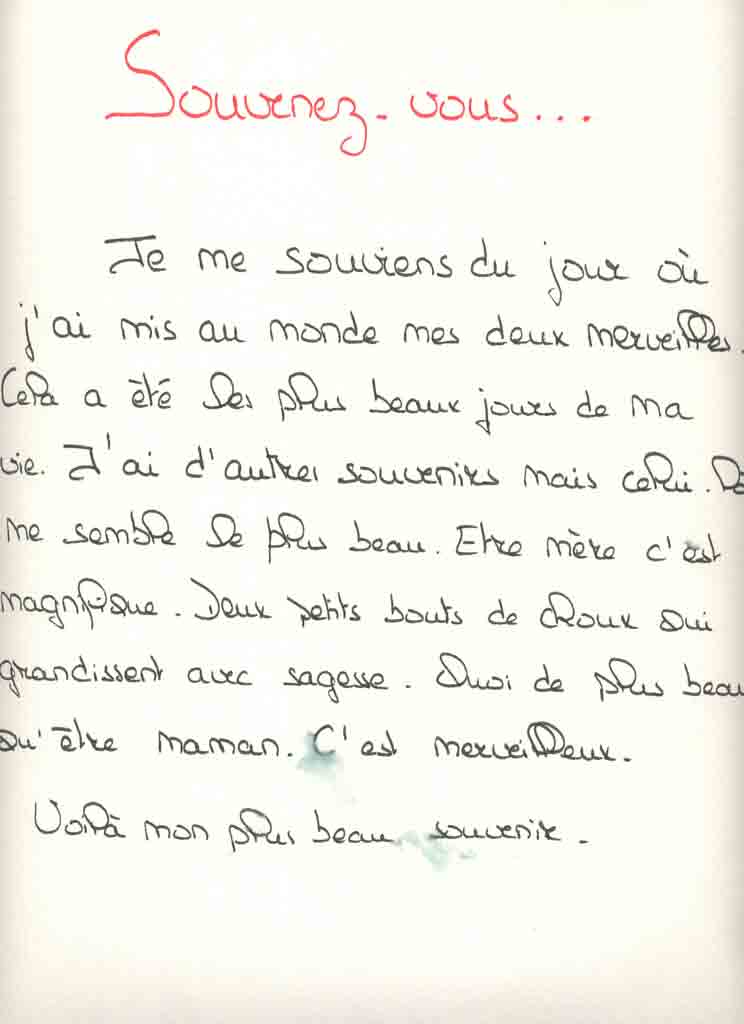 Souvenez-vous...
Je me souviens du jour où
j'ai mis au monde mes deux merveilles.
Cela a été les plus beaux jours de ma
vie. J'ai d'autres souvenirs mais celui-là
me semble le plus beau. Etre mère c'est
magnifique. Deux petits bouts de choux qui
grandissent avec sagesse. Quoi de plus beau
qu'être maman. C'est merveilleux.
Voilà mon plus beau souvenir.